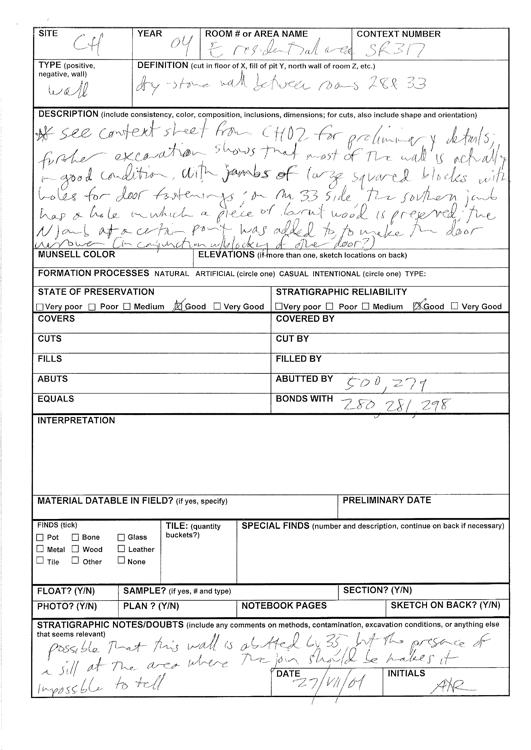 SITE CH YEAR 04 ROOM # or AREA NAME E residential area CONTEXT NUMBER SR317
TYPE (positive, negative, wall) wall
DEFINITION (cut in floor of X, fill of pit Y, north wall of room Z, etc.)
dry-stone wall between rooms 28 & 33
DESCRIPTION (include consistency, color, composition, inclusions, dimensions; for cuts, also include shape and orientation)
* see context sheet from CH02 for preliminary details;
further excavation shows that most of the wall is actually
in good condition, with jambs of large squared blocks with
holes for door fastenings; on rm. 33 side the southern jamb
has a hole in which a piece of burnt wood is preserved. The
N jamb at a certain point was added to to make the door
narrower (in conjunction w/ blocking of other door?)
MUNSELL COLOR ELEVATIONS (if more than one, sketch locations on back)
FORMATION PROCESSES NATURAL ARTIFICIAL (circle one) CASUAL INTENTIONAL (circle one) TYPE:
STATE OF PRESERVATION STRATIGRAPHIC RELIABILITY
Very poor Poor Medium Good Very Good Very poor Poor Medium Good Very Good
COVERS COVERED BY
CUTS CUT BY
FILLS FILLED BY
ABUTS ABUTTED BY 500, 279
EQUALS BONDS WITH 280, 281, 298
INTERPRETATION
MATERIAL DATABLE IN FIELD? (if yes, specify) PRELIMINARY DATE
FINDS (tick) TILE: (quantity SPECIAL FINDS (number and description, continue on back if necessary)
Pot Bone Glass buckets?)
Metal Wood Leather
Tile Other None
FLOAT? (Y/N) SAMPLE? (if yes, # and type) SECTION? (Y/N)
PHOTO? (Y/N) PLAN ? (Y/N) NOTEBOOK PAGES SKETCH ON BACK? (Y/N)
STRATIGRAPHIC NOTES/DOUBTS (include any comments on methods, contamination, excavation conditions, or anything else
that seems relevant)
possible that this wall is abutted by 35, but the presence of
a sill at the area where the join should be makes it
impossible to tell
DATE 27/VII/04 INITIALS